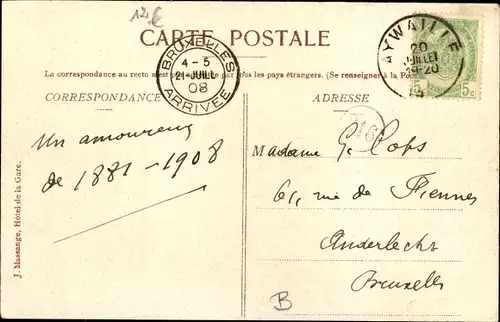 12 €
CARTE POSTALE
AYWAILLE
20
JUILLET
19-20
5c 5c
BRUXELLES
4 - 5
21 JUIL
08
ARRIVÉE
La correspondance au recto n'est pas par tous les pays étrangers. (Se renseigner à la Poste
CORRESPONDANCE
ADRESSE
16
Un amoureux
de 1881 - 1908
Madame G. Cops
61, rue de Fiennes
Anderlecht
Bruxelles
B
J. Massange, Hôtel de la Gare.